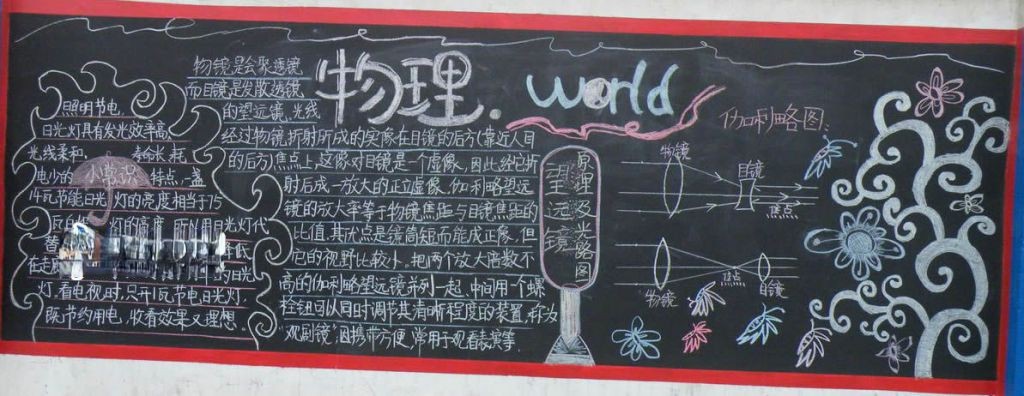 物理.
world
照明节电.
日光灯具有发光效率高,
光线柔和, 寿命长,耗
电少的 特点,一盏
14瓦节能日光灯的亮度相当于75
灯的亮度,所以用日光灯代
替
在走
灯,看电视时,只开1瓦节电日光灯,
既节约用电,收看效果又理想.
小常识
物镜是会聚透镜
而目镜是发散透镜
的望远镜.光线
经过物镜折射所成的实像在目镜的后方(靠近人目
的后方)焦点上,这像对目镜是一个虚像,因此经它折
射后成一放大的正立虚像,伽利略望远
镜的放大率等于物镜焦距与目镜焦距的
比值.其优点是镜筒短而能成正像,但
它的视野比较小.把两个放大倍数不
高的伽利略望远镜并列一起、中间用一个螺
栓钮可以同时调节其清晰程度的装置,称为
"观剧镜"因携带方便,常用于观看表演等.
望远镜
原理及光路图
伽利略图:
物镜
目镜
焦点
物镜
焦点
目镜